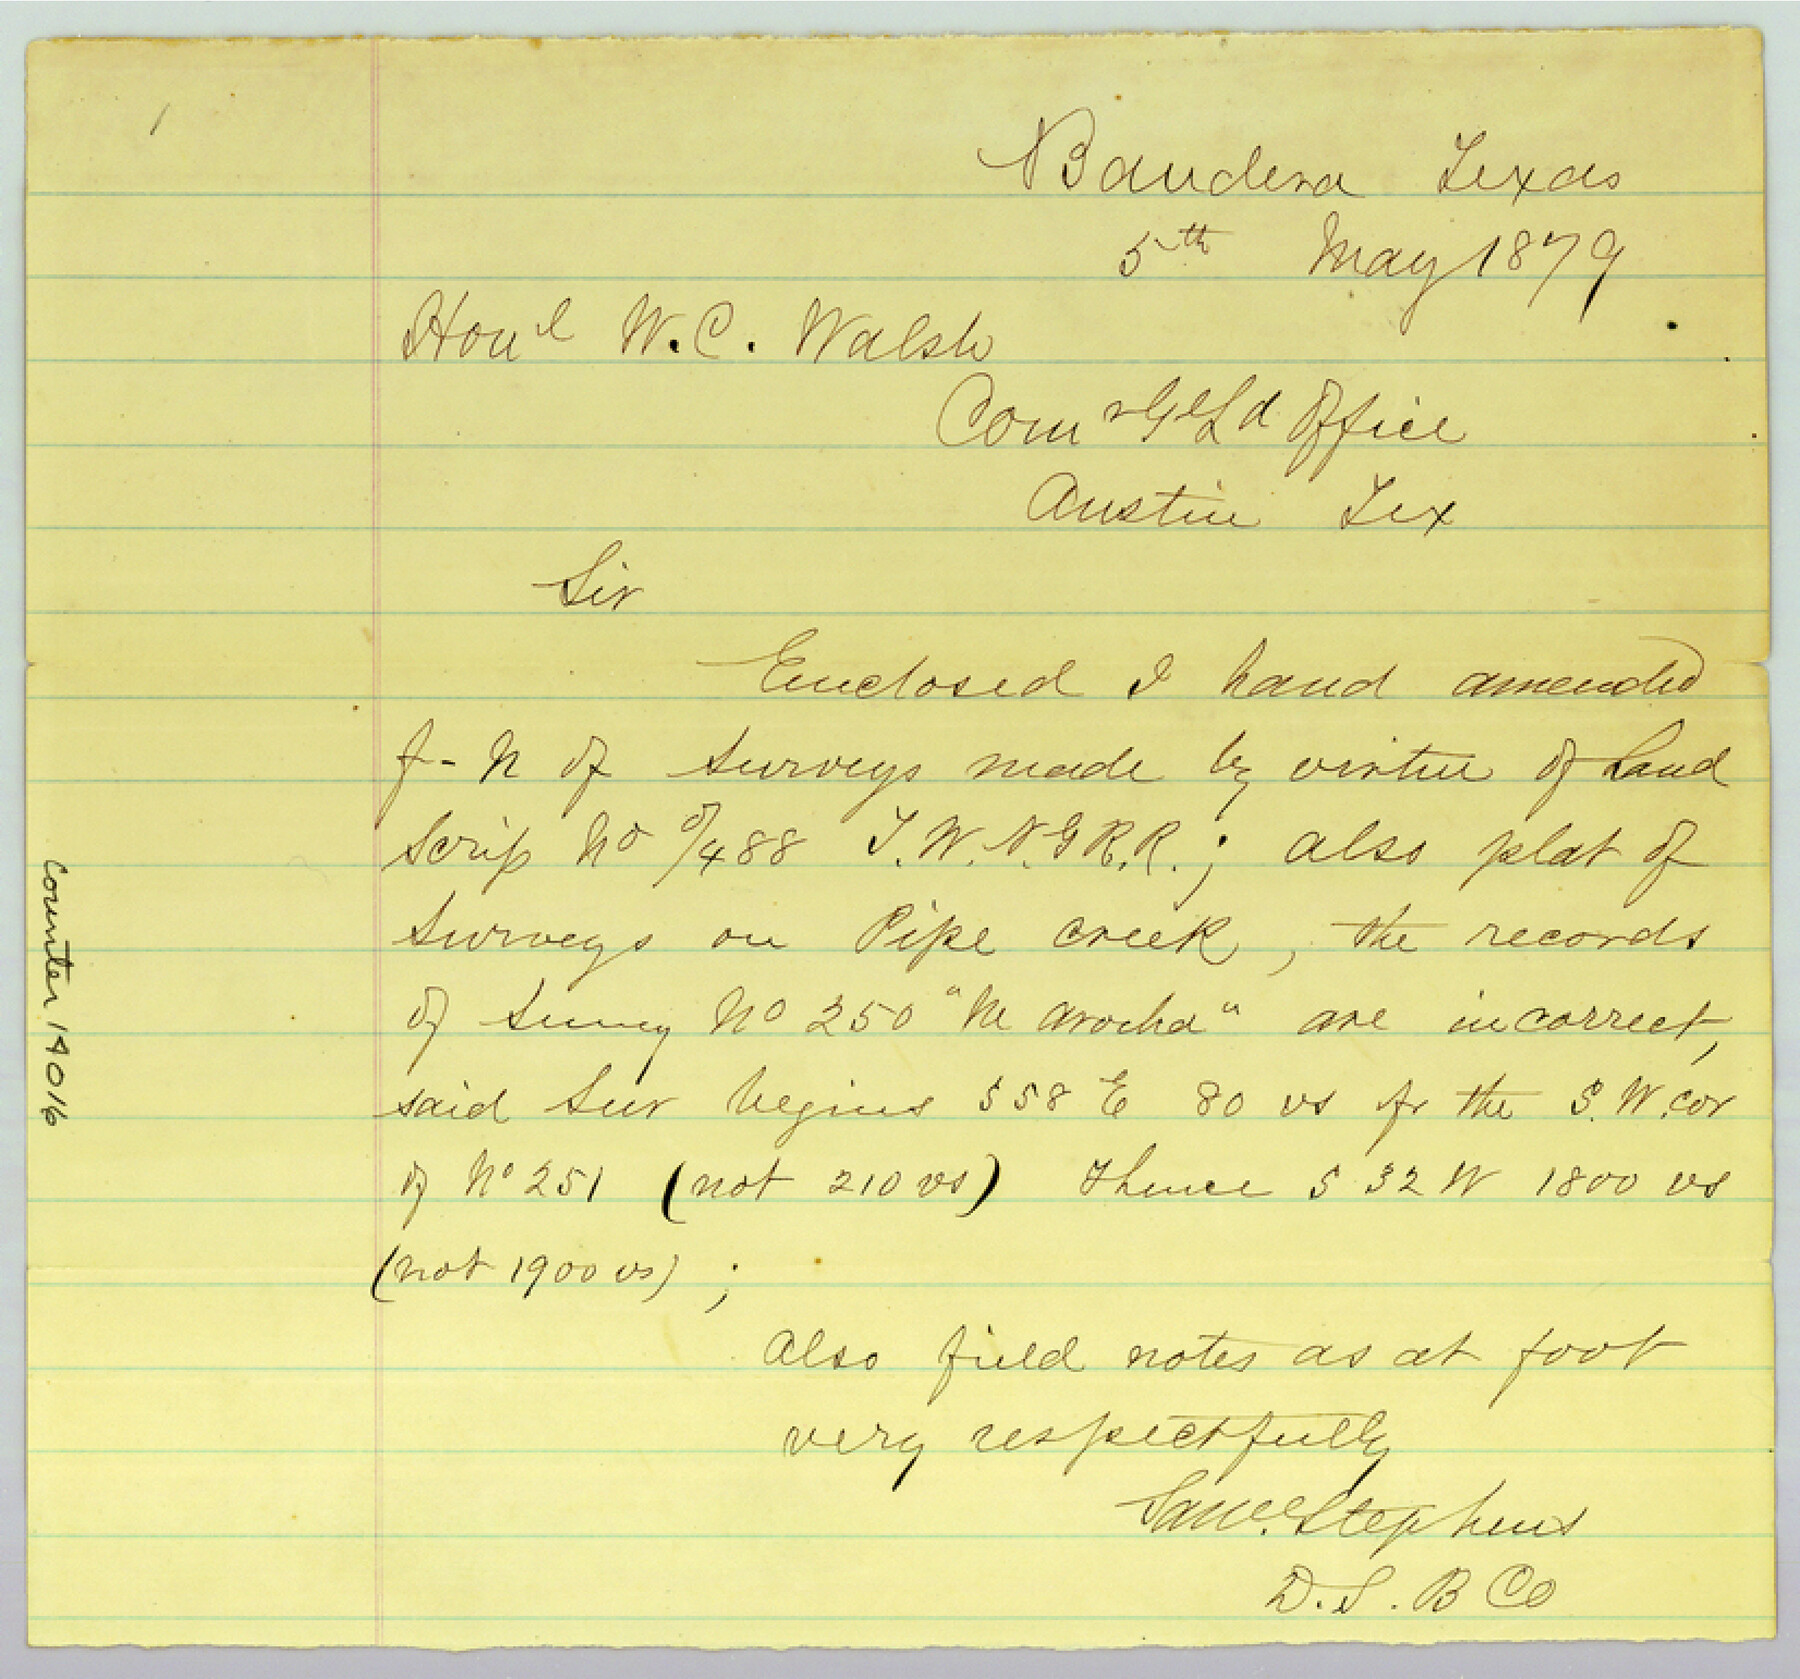 1
Bandera Texas
5th May 1879
Hon'l W. C. Walsh
Comr Gl Ld Office
Austin Tex
Sir
Enclosed I hand amended
f-N of surveys made by virtue of Land
Scrip No 0/488 T. W. N. G R. R. ; also plat of
surveys on Pipe creek, the records
of survey No 250 "M arocha" are incorrect,
said Sur begins S 58 E 80 vs fr the S. W. cor
of No 251 (not 210 vs) Thence S 32 W 1800 vs
(not 1900 vs) ;
Also field notes as at foot
very respectfully
Saml. Stephens
D. S. B Co
Counter 14016